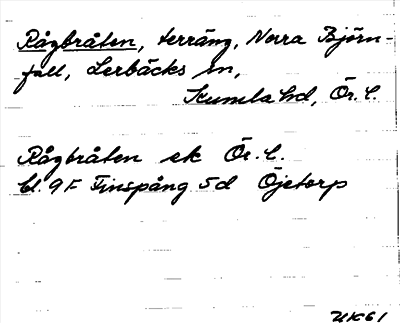 Rågbråten, terräng, Norra Björn-
fall, Lerbäcks sn,
Kumla hd, Ör. l.
Rågbråten ek Ör. l.
bl. 9 F Finspång 5 d Öjetorp
UK61